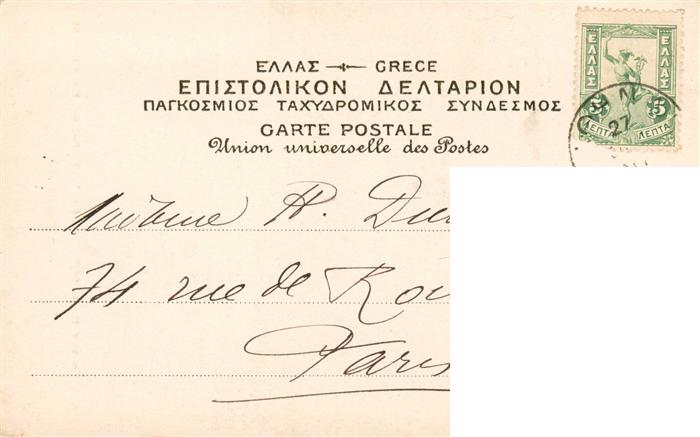 ΕΛΛΑΣ GRECE
ΕΠΙΣΤΟΛΙΚΟΝ ΔΕΛΤΑΡΙΟΝ
ΠΑΓΚΟΣΜΙΟΣ ΤΑΧΥΔΡΟΜΙΚΟΣ ΣΥΝΔΕΣΜΟΣ
CARTE POSTALE
Union universelle des Postes
ΕΛΛΑΣ ΕΛΛΑΣ
5 5
ΛΕΠΤΑ ΛΕΠΤΑ
27
Madame H.
74 rue de
Paris